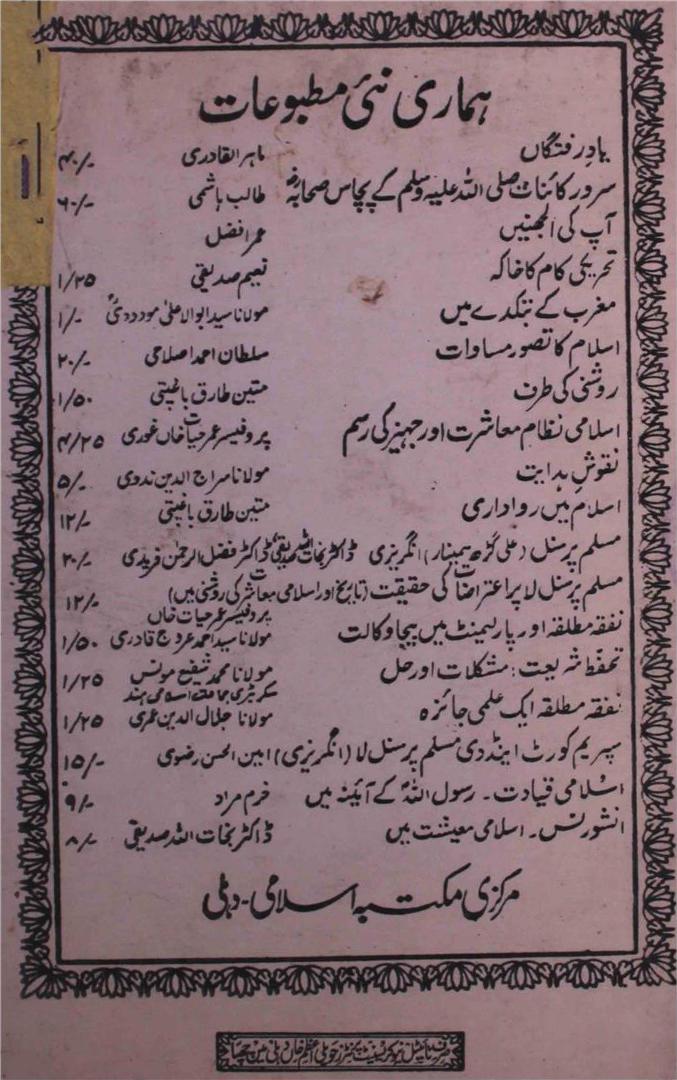 ہماری نئی مطبوعات
یادِ رفتگاں ماہر القادری ۴۰/-
سرور کائنات صلی اللہ علیہ وسلم کے پچاس صحابہؓ طالب ہاشمی ۶۰/-
آپ کی الجھنیں عمر افضل
تحریکی کام کا خاکہ نعیم صدیقی ۱/۲۵
مغرب کے بتکدے میں مولانا سید ابوالاعلیٰ مودودیؒ ۱/-
اسلام کا تصور مساوات سلطان احمد اصلاحی ۲۰/-
روشنی کی طرف متین طارق باغپتی ۱/۵۰
اسلامی نظام معاشرت اور جہیز کی رسم پروفیسر عمر حیات خاں غوری ۴/۲۵
نقوشِ ہدایت مولانا سراج الدین ندوی ۵/-
اسلام میں رواداری متین طارق باغپتی ۱۲/-
مسلم پرسنل (علی گڑھ سیمینار) انگریزی ڈاکٹر نجات اللہ صدیقی، ڈاکٹر فضل الرحمٰن فریدی ۲۰/-
مسلم پرسنل لا پر اعتراضات کی حقیقت (تاریخ اور اسلامی معاشرت کی روشنی میں) ۱۲/-
پروفیسر عمر حیات خاں
نفقہ مطلقہ اور پارلیمنٹ میں بیجا وکالت مولانا سید احمد عروج قادری ۱/۵۰
تحفظ شریعت: مشکلات اور حل مولانا محمد شفیع مونس ۱/۲۵
سکریٹری جماعت اسلامی ہند
نفقہ مطلقہ ایک علمی جائزہ مولانا جلال الدین عمری ۱/۲۵
سپریم کورٹ اینڈ دی مسلم پرسنل لا (انگریزی) امین الحسن رضوی ۱۵/-
اسلامی قیادت۔ رسول اللہؐ کے آئینہ میں خرم مراد ۹/-
انشورنس۔ اسلامی معیشت میں ڈاکٹر نجات اللہ صدیقی ۸/-
مرکزی مکتبہ اسلامی - دہلی
صرف ٹائیٹل نیو کریسنٹ پرنٹرز حویلی اعظم خاں دہلی میں چھپا